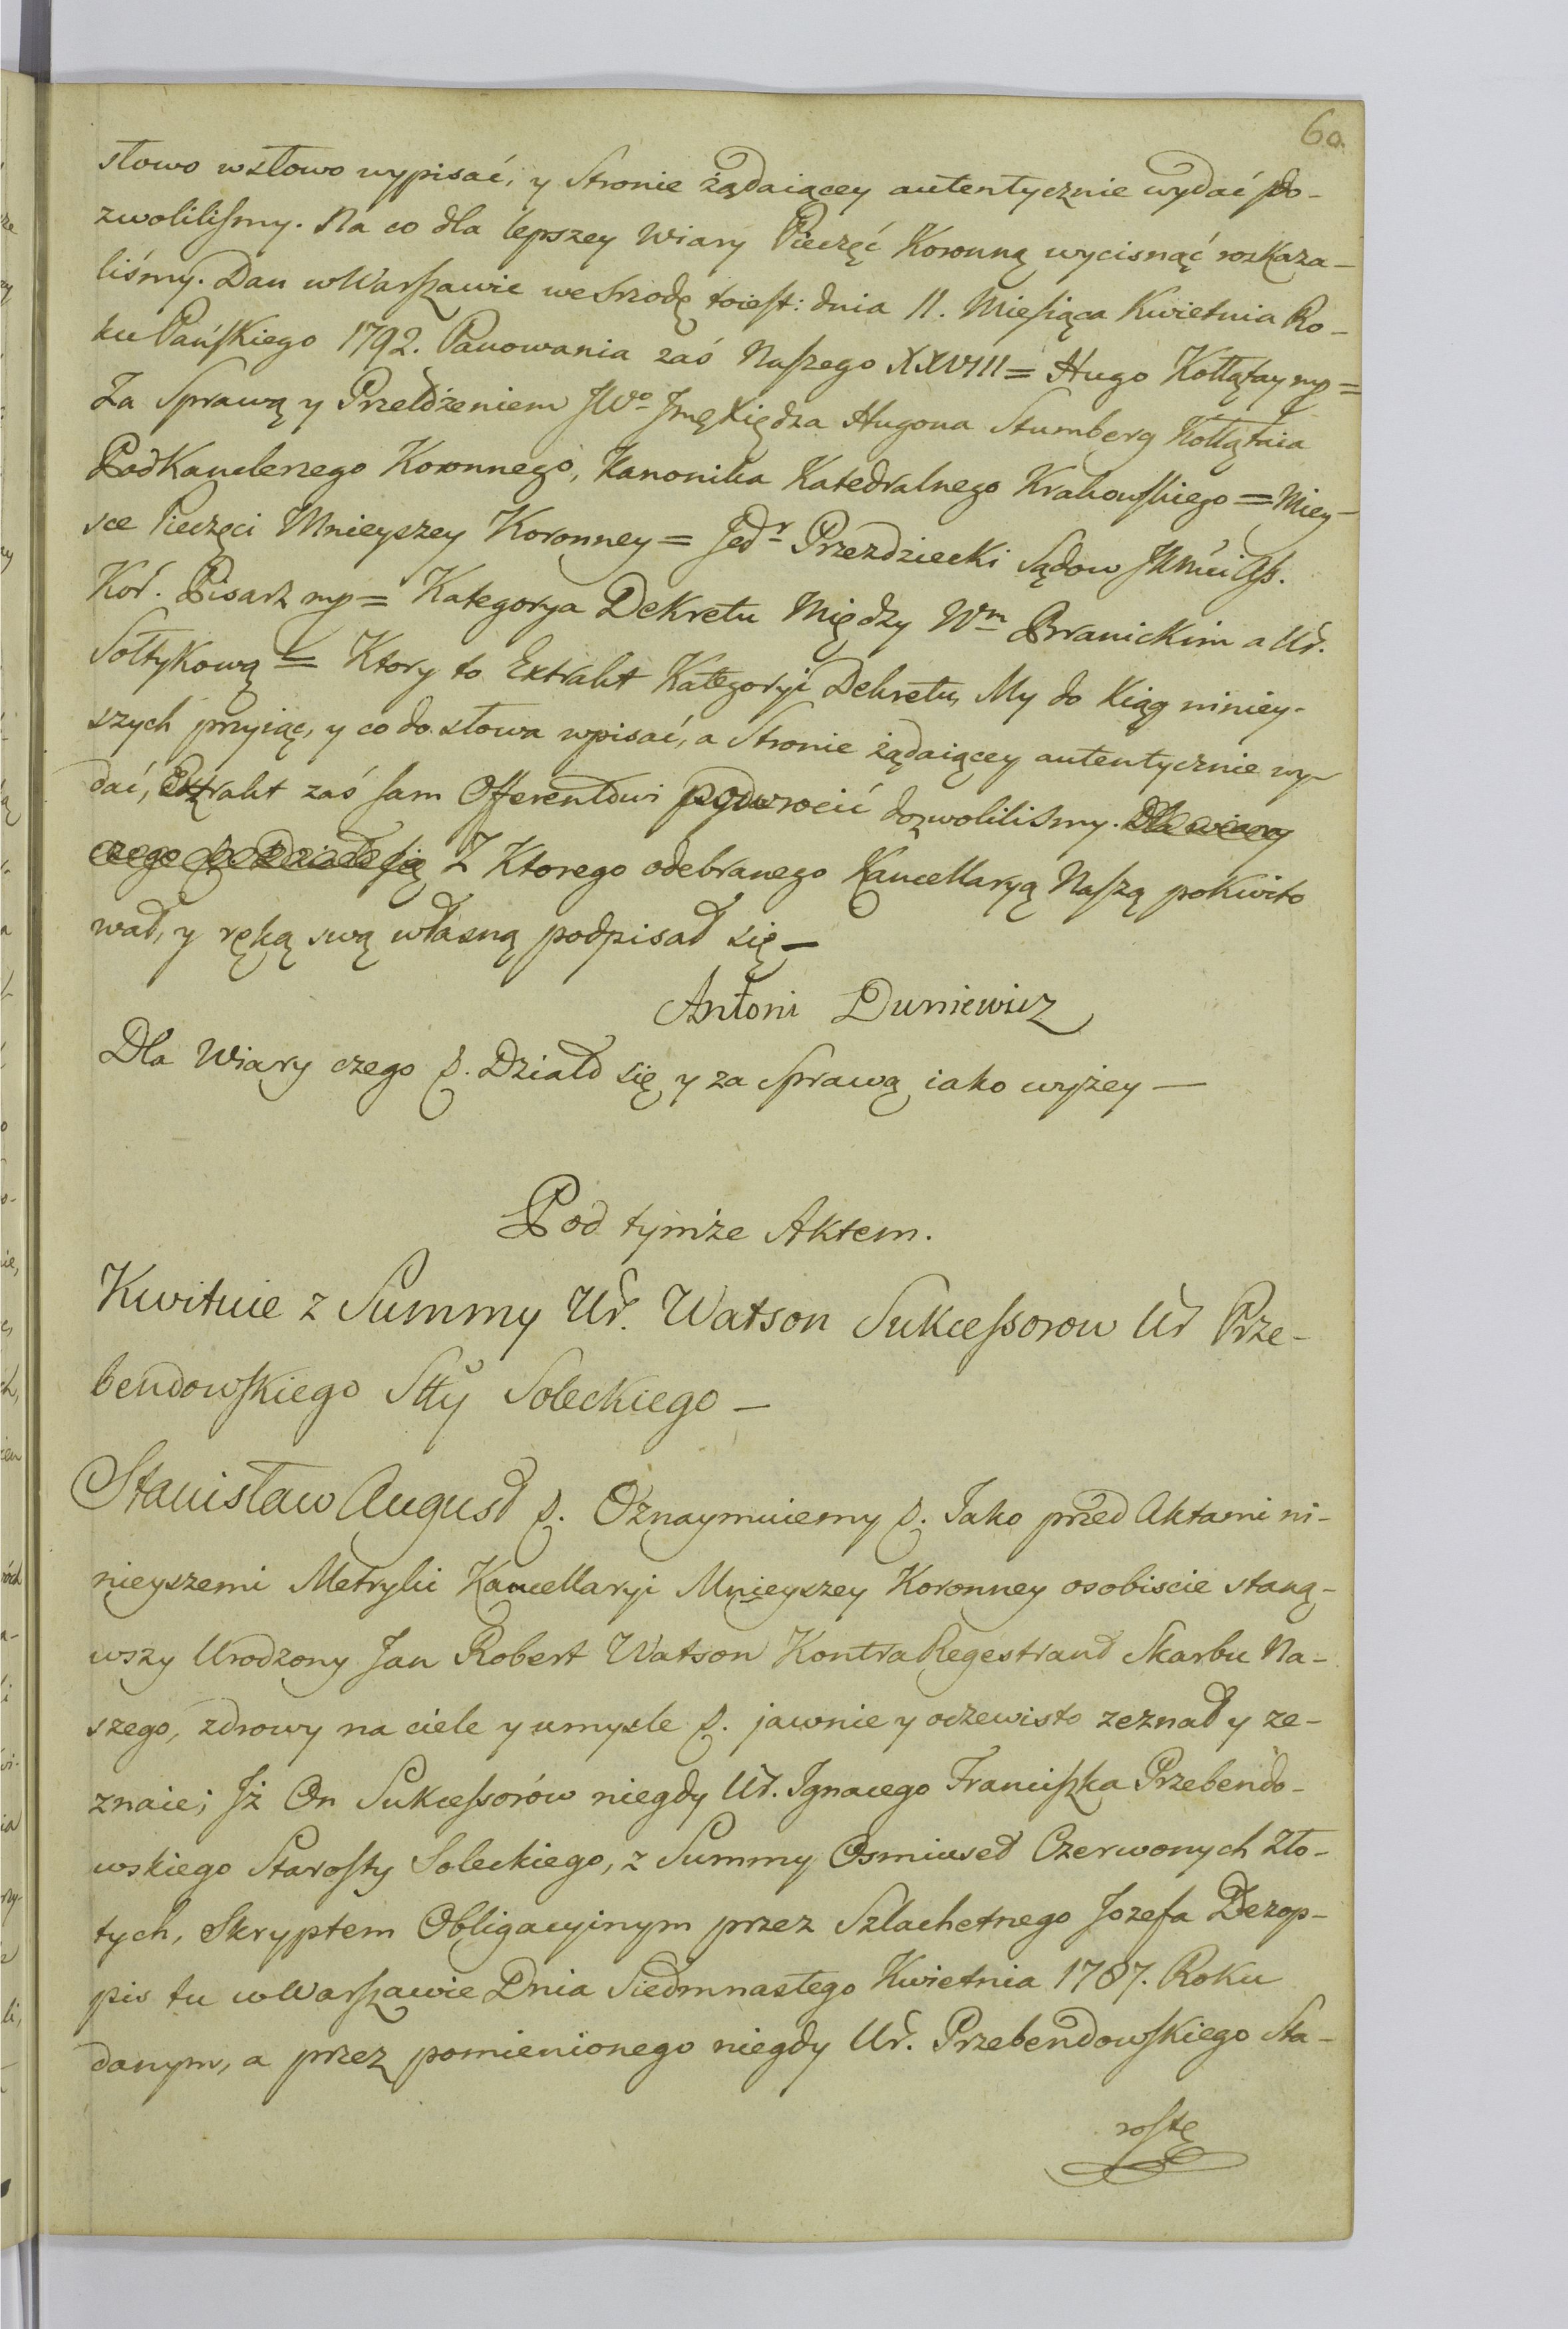 60.
słowo wsłowo wypisać, y Stronie żądaiącey autentycznie wydać po-
zwoliliśmy. Na co dla lepszey Wiary Pieczęć Koronną wycisnąć rozkaza-
liśmy. Dan w Warszawie we Srzodę toiest: dnia 11. Miesiąca Kwietnia Ro-
ku Pańskiego 1792. Panowania zaś Naszego XXVIII = Hugo Kołłątay mp =
Za Sprawą y Przełożeniem JWo Jmę Xiędza Hugona Stumberg Kołłątaia
PodKanclerzego Koronnego, Kanonika Katedralnego Krakowskiego = Miey-
sce Pieczęci Mnieyszey Koronney = Jedr Przezdziecki Sądow JKMści
Kor. Pisarz mp = Kategorya Dekretu Między Wm Branickim a Ur.
Sołtykową = Ktory to Extrakt Kategoryi Dekretu, My do Xiąg niniey-
szych przyiąć, y co do słowa wpisać, a Stronie żądaiącey autentycznie wy-
dać, Extrakt zaś sam Offerentowi powrocić dozwoliliśmy. Dla wiary
czego Działo się Z Ktorego odebranego Kancellaryą Naszą pokwito
wał, y ręką swą własną podpisał się —
Antoni Duniewicz
Dla Wiary czego p. Działo się y za Sprawą iako wyżey —
Pod tymże Aktem.
Kwituie z Summy Ur. Watson Sukcessorow Ur Prze-
bendowskiego Stty Soleckiego —
Stanisław August p. Oznaymuiemy p. Jako przed Aktami ni-
nieyszemi Metryki Kancellaryi Mnieyszey Koronney osobiscie staną-
wszy Urodzony Jan Robert Watson KontraRegestrant Skarbu Na-
szego, zdrowy na ciele y umysle p. jawnie y oczewisto zeznał y ze-
znaie; Jż On Sukcessorów niegdy Ur. Ignacego Franciszka Przebendo-
wskiego Starosty Soleckiego, z Summy Osmiuset Czerwonych Zło-
tych, Skryptem Obligacyinym przez Szlachetnego Jozefa Dezop-
pis tu w Warszawie Dnia Siedmnastego Kwietnia 1787. Roku
danym, a przez pomienionego niegdy Ur. Przebendowskiego Sta-
rostę